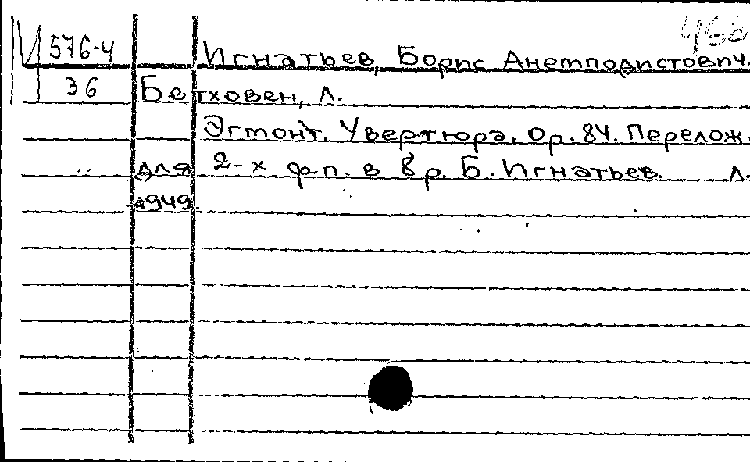 576-4 Игнатьев, Борис Анемподистович.
36 Бетховен, Л.
Эгмонт. Увертюра. Op. 84. Перелож.
для 2-х ф-п. в 8 р. Б. Игнатьев. Л.
1949